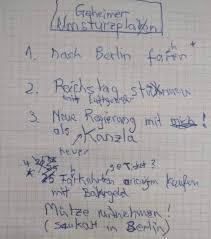 Geheimer
Umsturzplan
1. Nach Berlin fahren *
2. Reichstag stürmen
mit Luftgewehr
3. Neue Regierung mit mich!
als Kanzla
neuer
* 25 Fahrkahrten kaufen
mit Bargeld
Mütze mitnehmen!
(saukalt in Berlin)